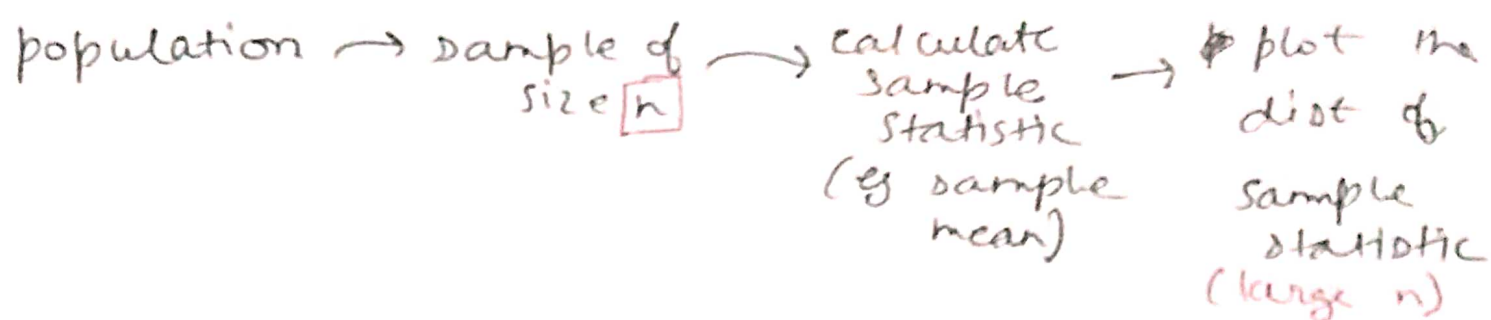 population → sample of size n
→ calculate sample statistic (eg sample mean)
→ plot the dist of sample statistic (large n)